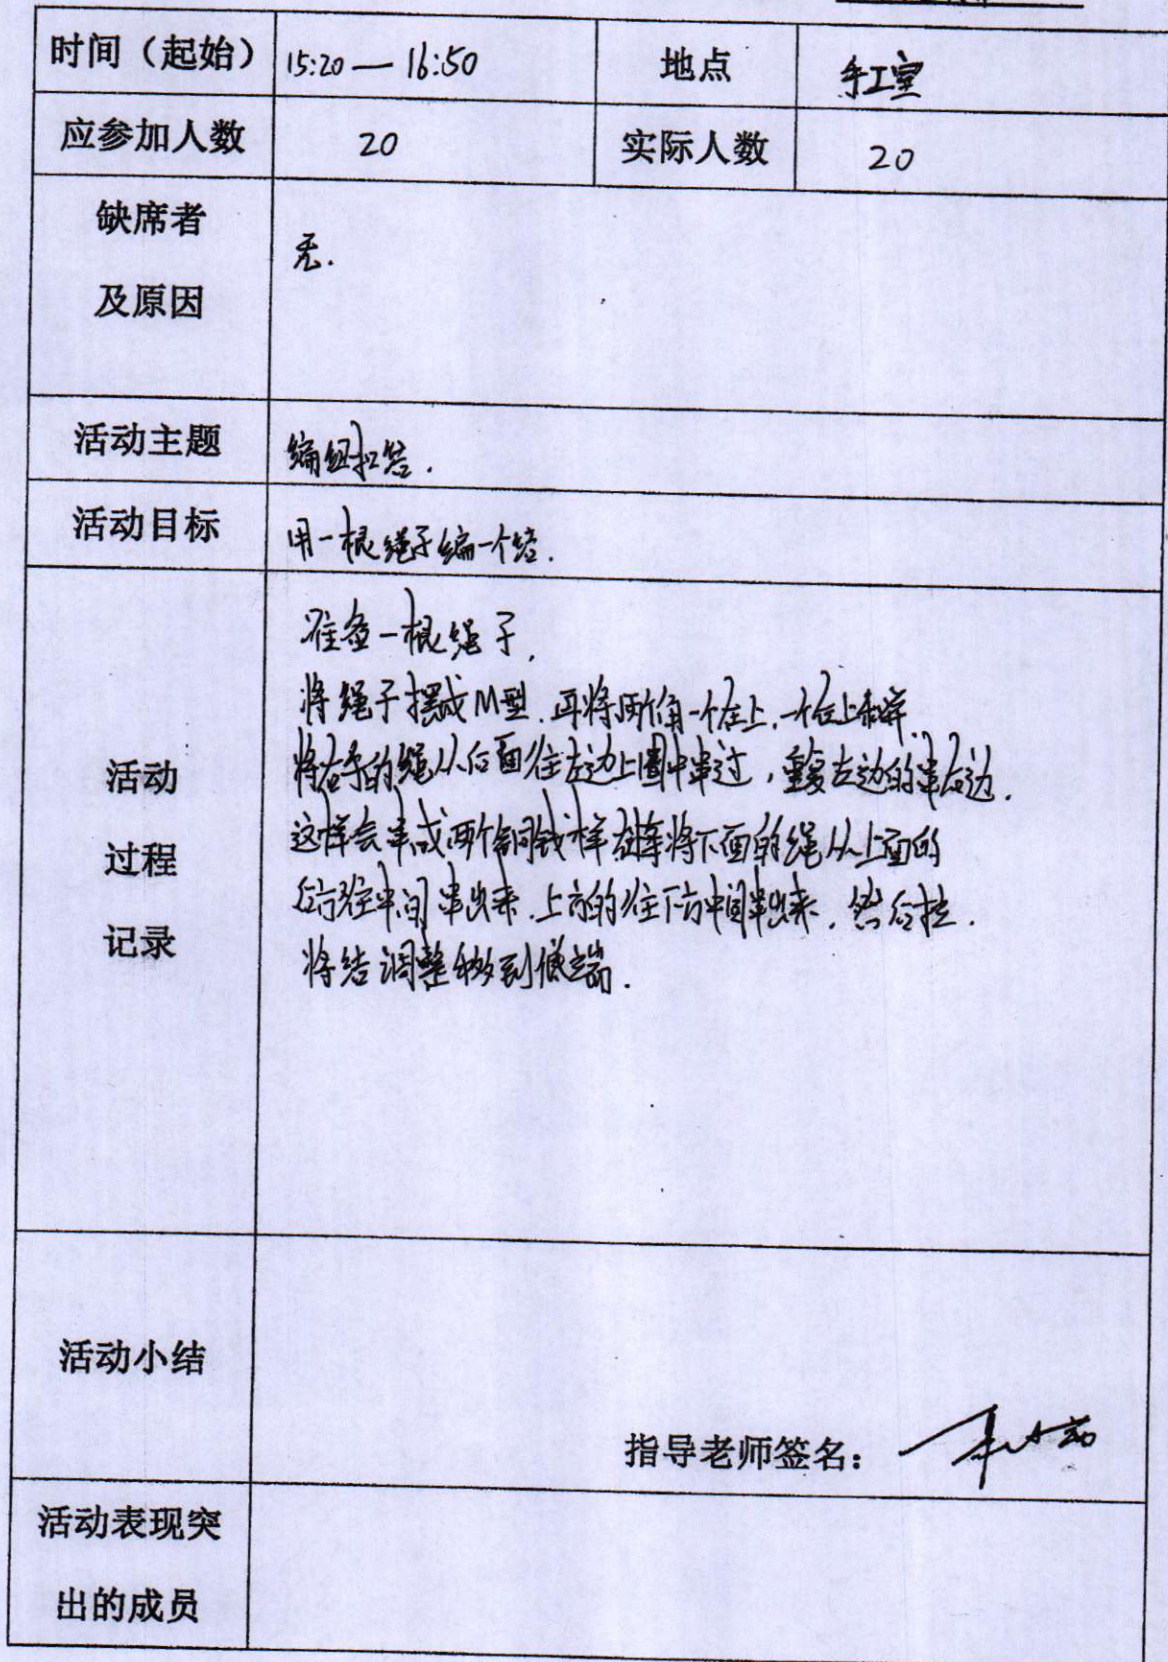 时间（起始） 15:20 — 16:50 地点 手工室
应参加人数 20 实际人数 20
缺席者
及原因
无.
活动主题 编纽扣结.
活动目标 用一根绳子编一个结.
活动
过程
记录
准备一根绳子,
将绳子摆成M型.再将两个角一个左上,一个右上
将右手的绳从后面往左边上圈中串过,重复左边的串右边.
这样会串成两个铜钱样 将下面的绳从上面的
后方 中间串出来.上方的往下方中间串出来.然后拉.
将结调整移到低端.
活动小结
指导老师签名：
活动表现突
出的成员